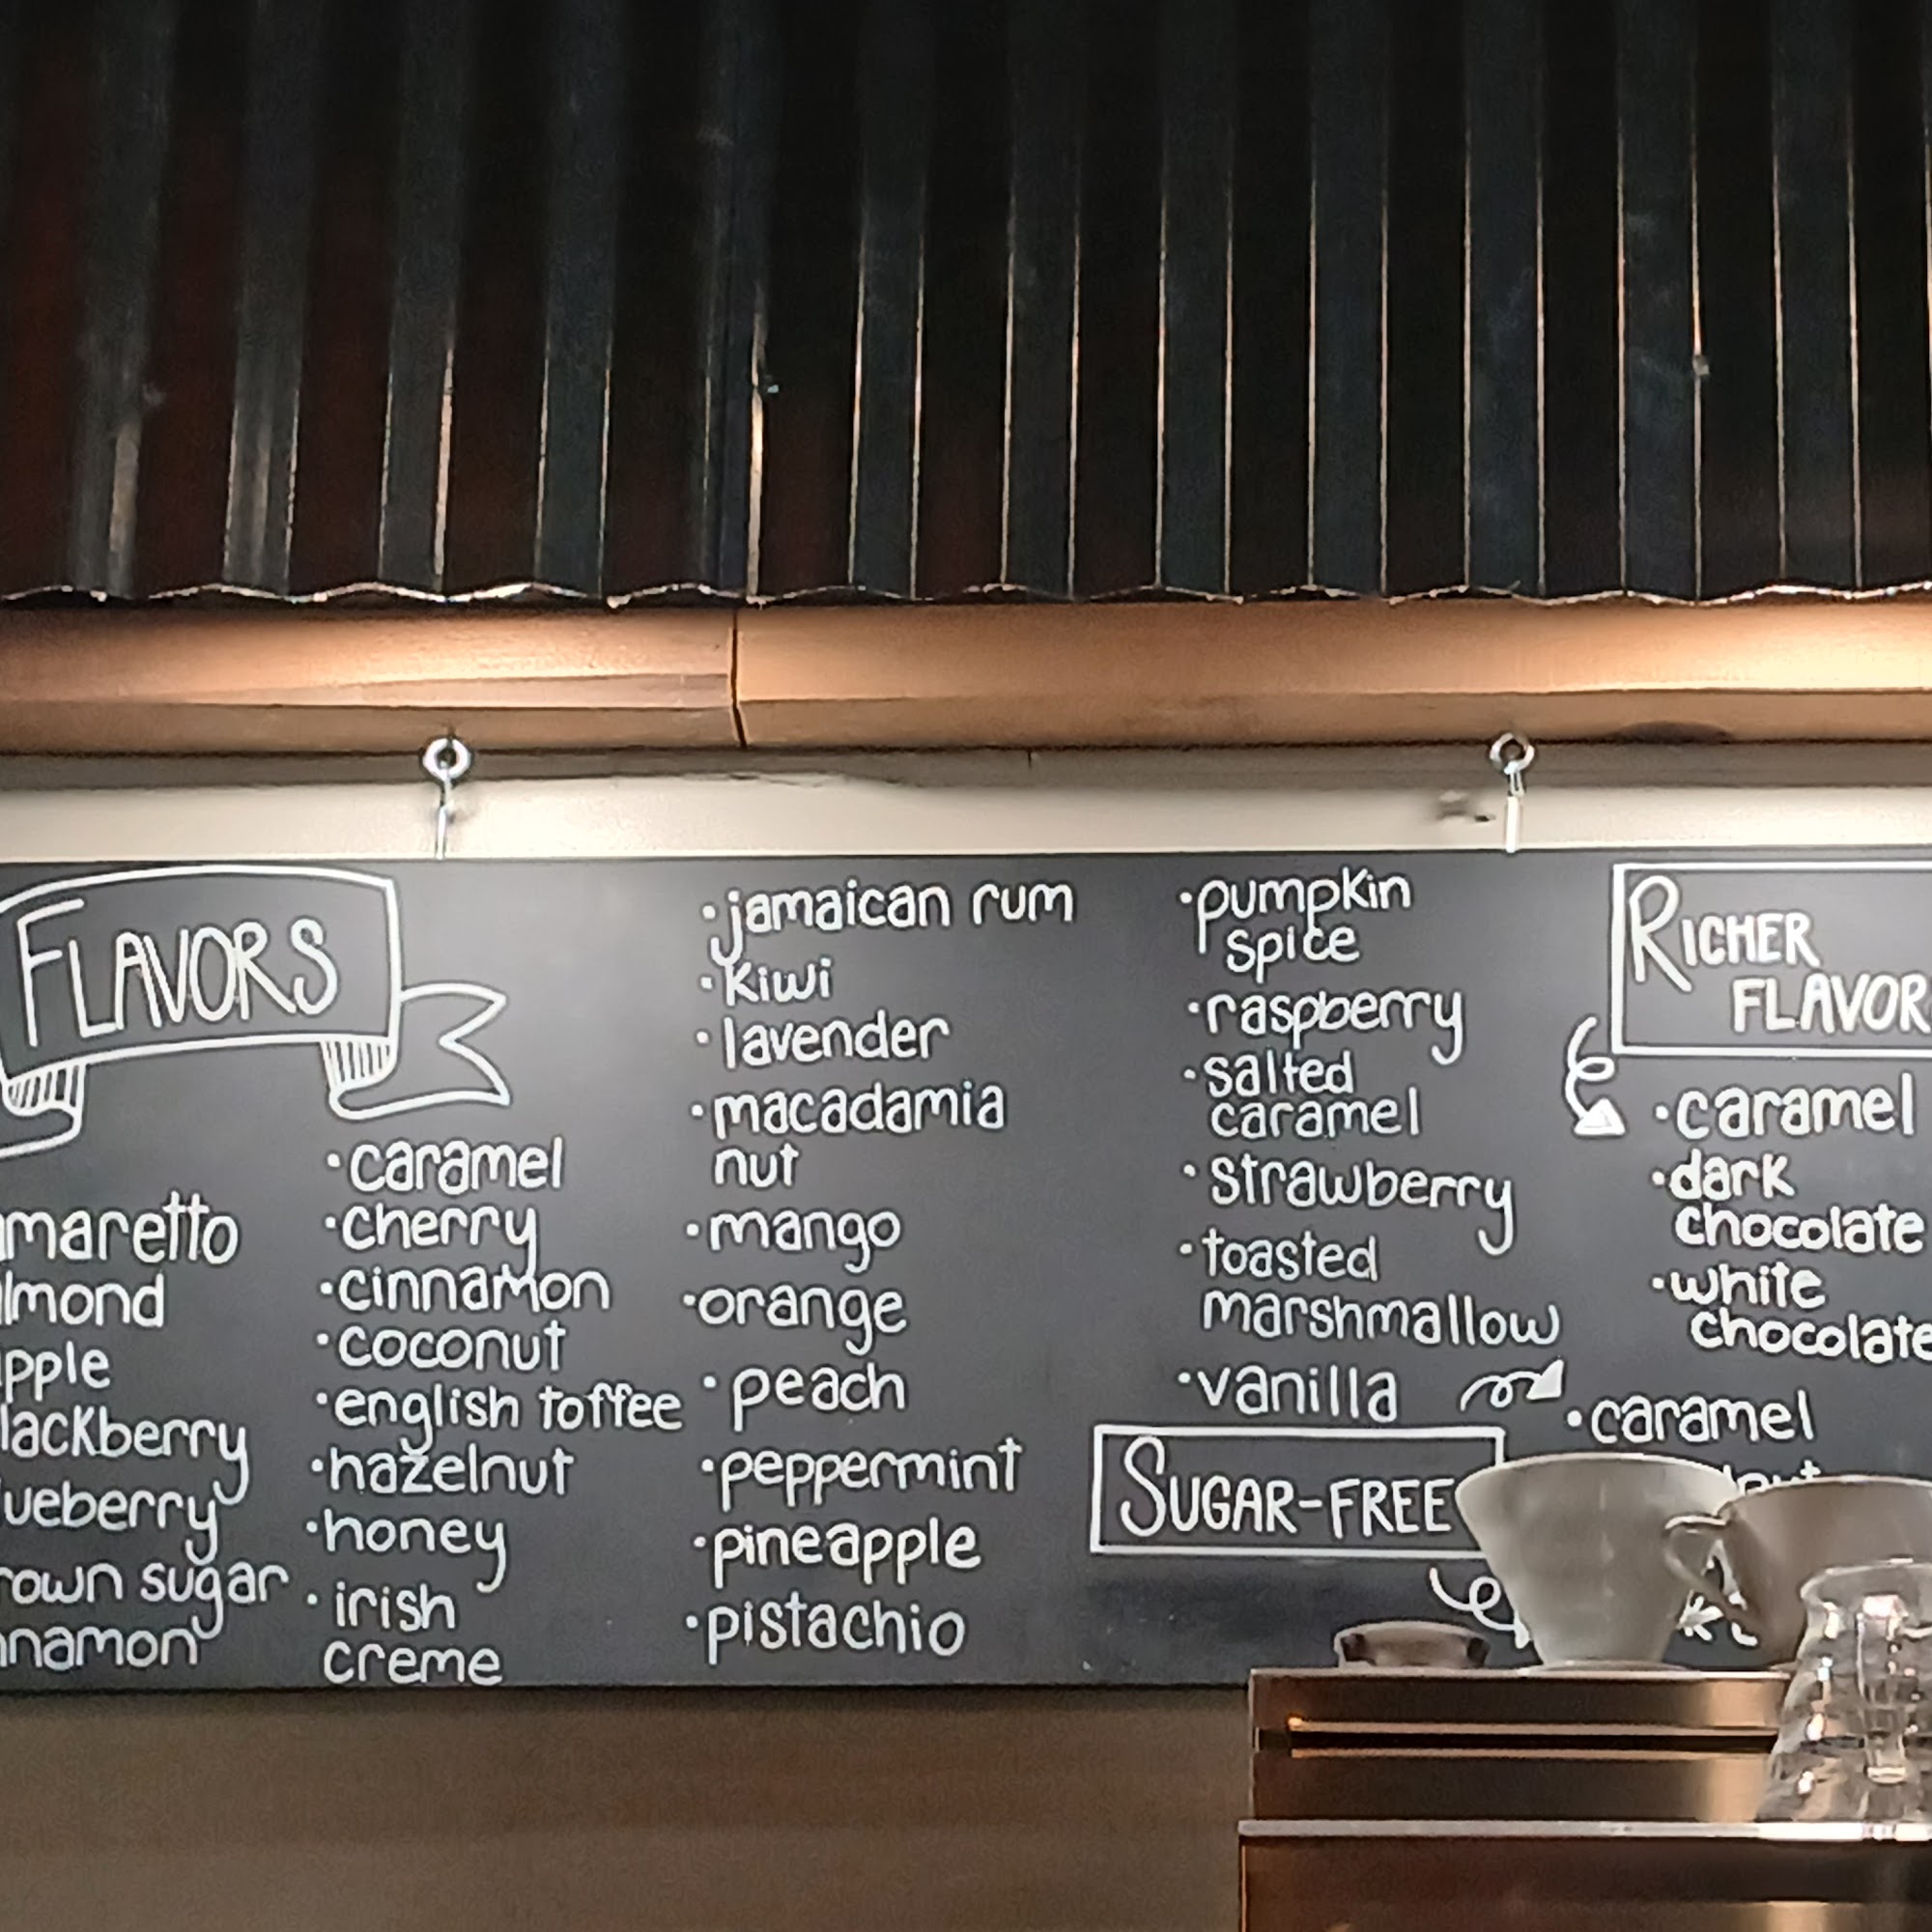 FLAVORS
maretto
lmond
pple
lackberry
ueberry
rown sugar
nnamon
·caramel
·cherry
·cinnamon
·coconut
·english toffee
·hazelnut
·honey
·irish
creme
·jamaican rum
·kiwi
·lavender
·macadamia
nut
·mango
·orange
·peach
·peppermint
·pineapple
·pistachio
·pumpkin
spice
·raspberry
·salted
caramel
·strawberry
·toasted
marshmallow
·vanilla
SUGAR-FREE
RICHER
FLAVOR
·caramel
·dark
chocolate
·white
chocolate
·caramel